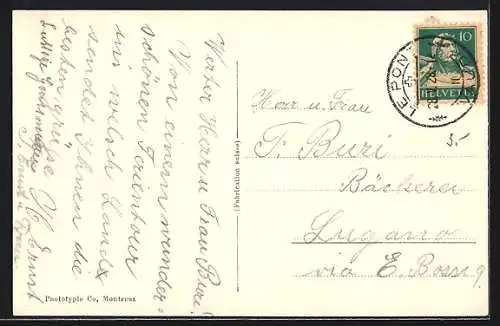 Werter Herr u. Frau Buri!
Von einem wunder-
schönen Ferientour
ins welsch Land
sendet Ihnen die
besten Grüße
H. Ernst
(Fabrication suisse)
Phototypie Co, Montreux
10
HELVETIA
LE PONT
Herr u. Frau
F. Buri
Bäckerei
Lugano
via E. Bossi 9
5.-